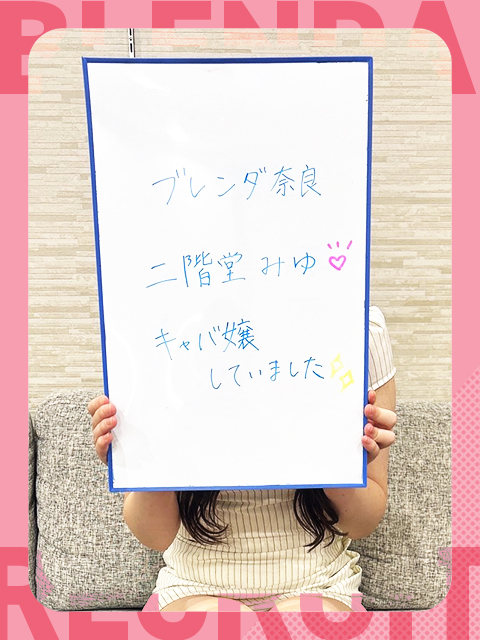 BLENDA
ブレンダ奈良
二階堂みゆ
キャバ嬢
していました
RECRUIT